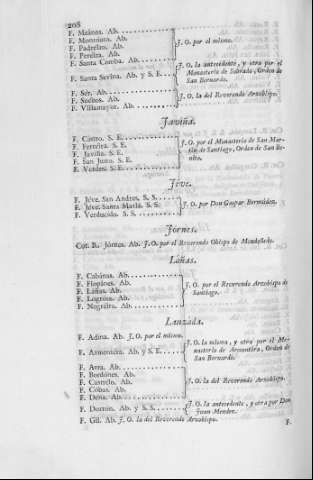 208
F. Maloxa. Ab.
F. Montouto. Ab.
F. Padrelas. Ab.
F. Pereira. Ab.
J. O. por el mismo.
F. Santa Comba. Ab.
F. Santa Serina. Ab. y S. E.
J. O. la antecedente, y otra por el
Monasterio de Sobrado, Orden de
San Bernardo.
F. Sér. Ab.
F. Sueiros. Ab.
F. Villamayor. Ab.
J. O. la del Reverendo Arzobispo.
Javiña.
F. Castro. S. E.
F. Ferreira. S. E.
F. Javiña. S. E.
F. San Juan. S. E.
F. Verdes. S. E.
J. O. por el Monasterio de San Martin de Santiago, Orden de San Benito.
Jéve.
F. Jéve, San Andres. S. S.
F. Jéve, Santa María. S. S.
F. Verducido. S. S.
J. O. por Don Gaspar Bermudez.
Jórnes.
Cot. R. Jórnes. Ab. J. O. por el Reverendo Obispo de Mondoñedo.
Láñas.
F. Cabánas. Ab.
F. Ab.
F. Láñas. Ab.
F. Ab.
F. Nogueira. Ab.
J. O. por el Reverendo Arzobispo de
Santiago.
Lanzada.
F. Adina. Ab. J. O. por el mismo.
F. Armenteira. Ab. y S. E.
J. O. la misma, y otra por el Monasterio de Armentéira, Orden de
San Bernardo.
F. Arra. Ab.
F. Bordónes. Ab.
F. Castrelo. Ab.
F. Cobas. Ab.
F. Dena. Ab.
J. O. la del Reverendo Arzobispo.
F. Dorrón. Ab. y S. S.
J. O. la antecedente, y otra por Don
Juan Mendez.
F. Gil. Ab. J. O. la del Reverendo Arzobispo.
F.